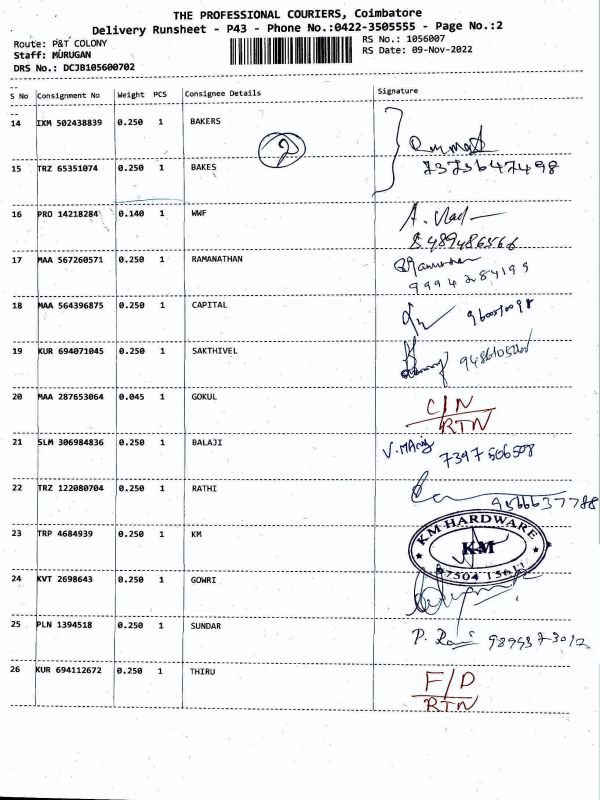 THE PROFESSIONAL COURIERS, Coimbatore
Delivery Runsheet - P43 - Phone No.:0422-3505555 - Page No.:2
Route: P&T COLONY
RS No.: 1056007
Staff: MURUGAN
RS Date: 09-Nov-2022
DRS No.: DCJB105600702
S No Consignment No Weight PCS Consignee Details Signature
14 IXM 502438839 0.250 1 BAKERS
2
15 TRZ 65351074 0.250 1 BAKES 7373647498
16 PRO 14218284 0.140 1 WWF
8489486566
17 MAA 567260571 0.250 1 RAMANATHAN
9994284199
18 MAA 564396875 0.250 1 CAPITAL
19 KUR 694071045 0.250 1 SAKTHIVEL
20 MAA 287653064 0.045 1 GOKUL C/N
RTN
21 SLM 306984836 0.250 1 BALAJI 7397506508
22 TRZ 122080704 0.250 1 RATHI 9566637788
23 TRP 4684939 0.250 1 KM KM HARDWARE
KM
24 KVT 2698643 0.250 1 GOWRI
25 PLN 1394518 0.250 1 SUNDAR
26 KUR 694112672 0.250 1 THIRU F/D
RTN